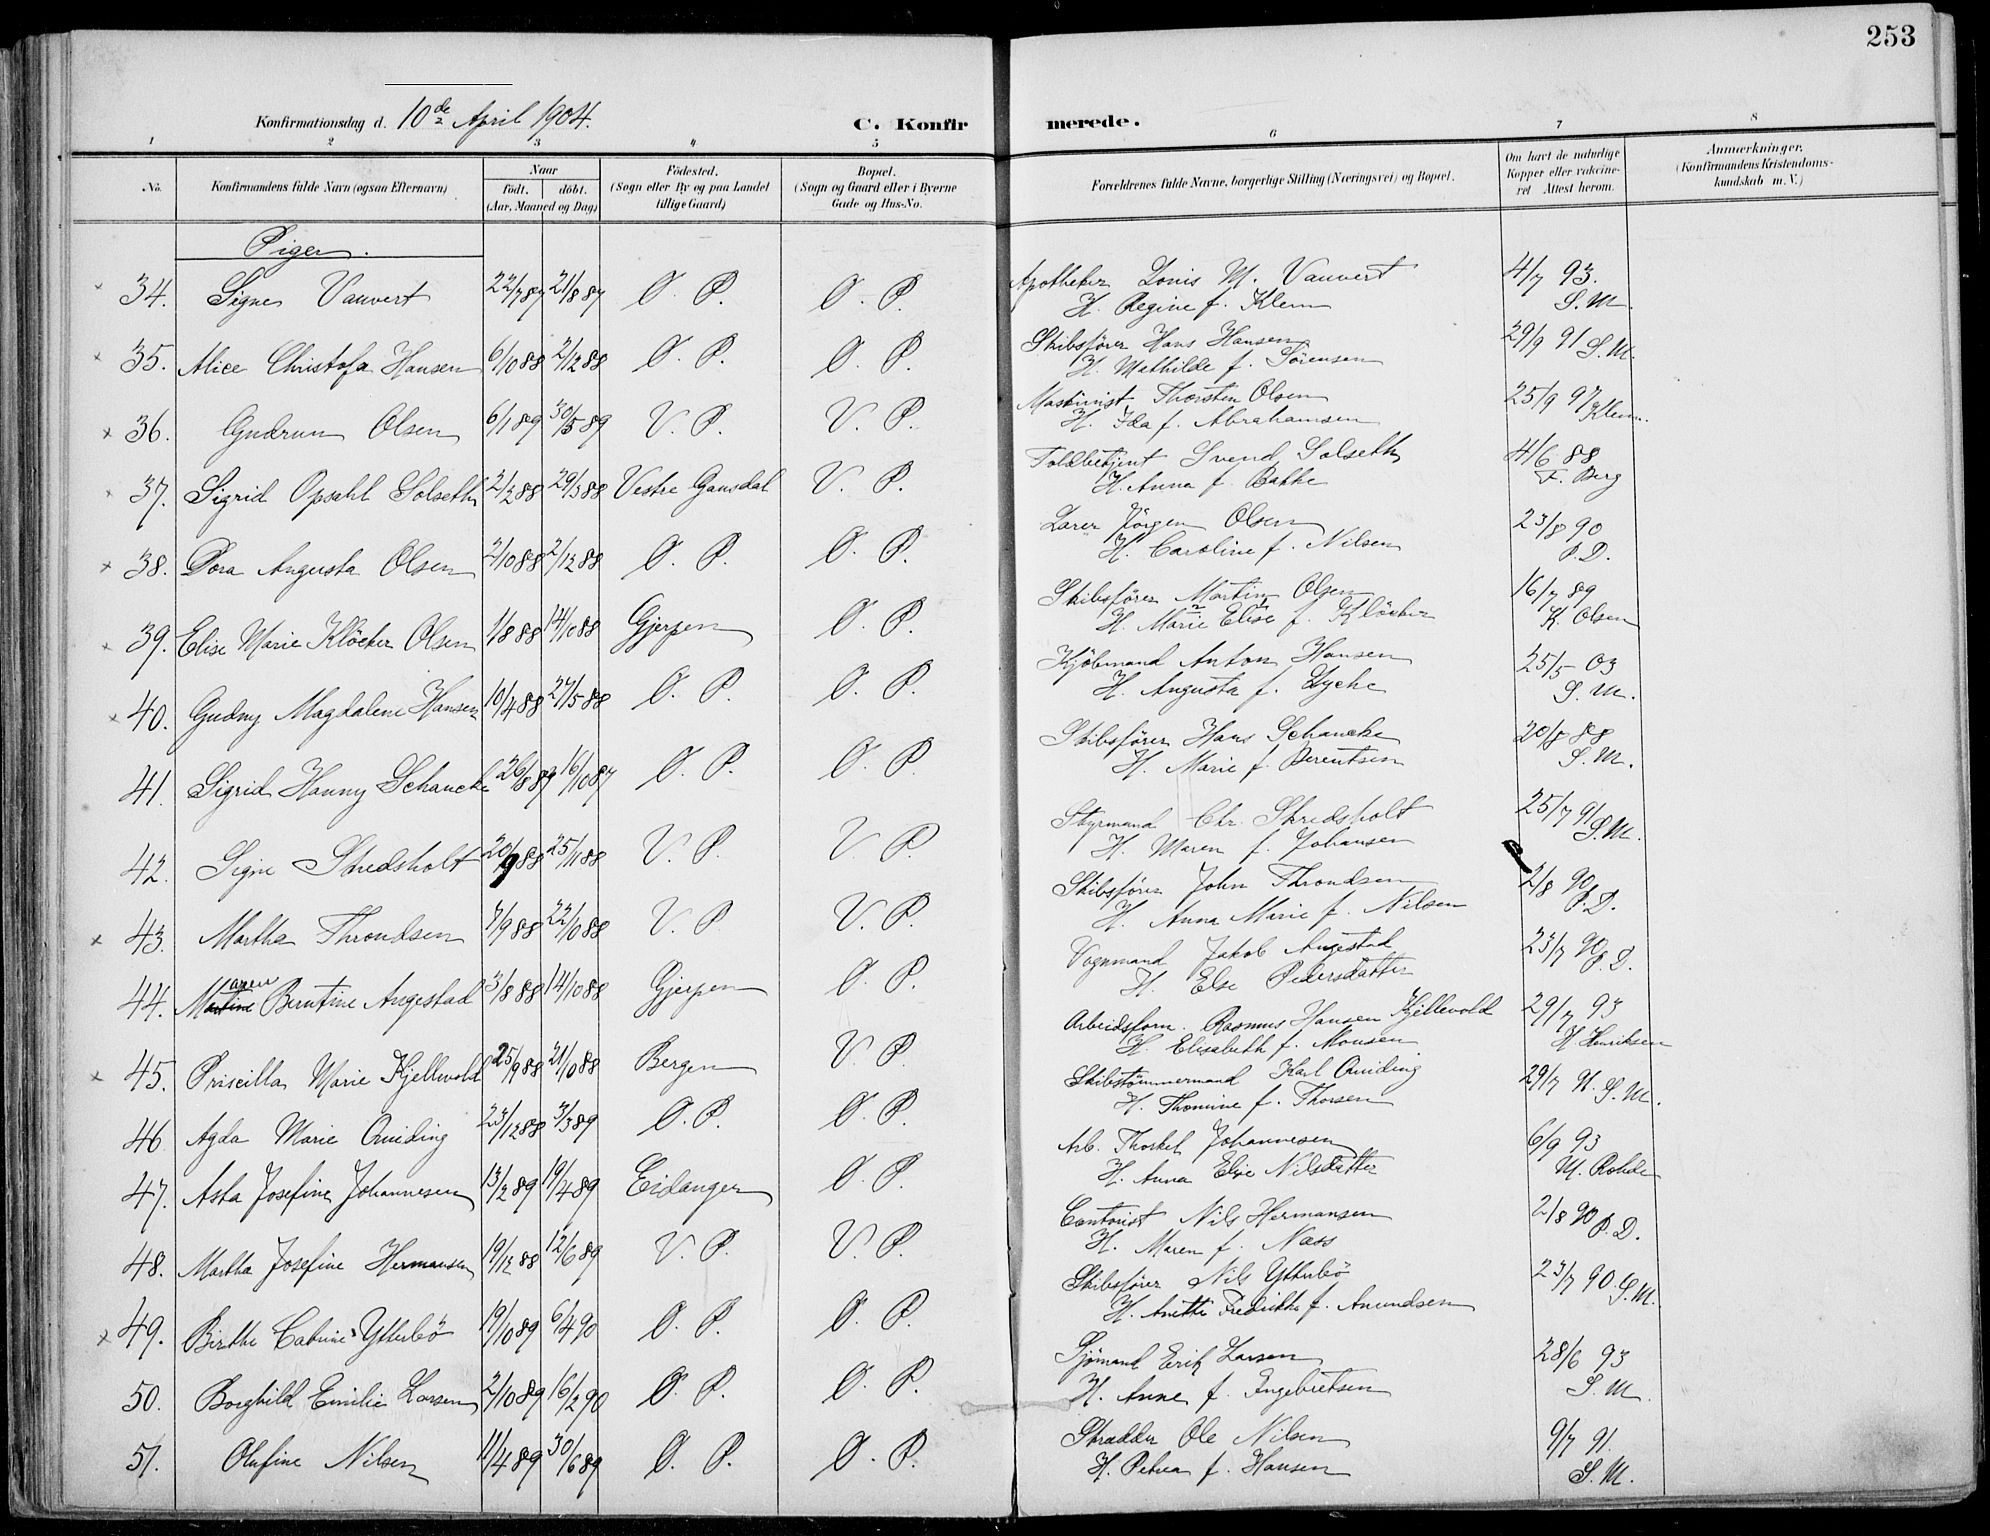 253
Konfirmationsdag d. 10de April 1904.
C. Konfirmerede.
1 2 3 4 5 6 7 8
No.
Konfirmandens fulde Navn (ogsaa Efternavn)
Naar
födt. döbt.
(Aar, Maaned og Dag)
Födested.
(Sogn eller By og paa Landet
tillige Gaard)
Bopæl.
(Sogn og Gaard eller i Byerne
Gade og Hus-No.
Forældrenes fulde Navne, borgerlige Stilling (Næringsvei) og Bopæl.
Om havt de naturlige
Kopper eller vakcine-
ret Attest herom.
Anmærkninger.
(Konfirmandens Kristendoms-
kundskab m. V.)
Piger.
× 34. Signe Vauvert 22/7 87 21/8 87 Ø. P. Ø. P. Apotheker Louis M. Vauvert 4/7 93.
H. Regine f. Klem S. M.
× 35. Alice Christofa Hansen 6/10 88 2/12 88 Ø. P. Ø. P. Skibsfører Hans Hansen 29/9 91 S. M.
H. Mathilde f. Sörensen
× 36. Gudrun Olsen 6/1 89 30/5 89 V. P. V. P. Maskinist Thorsten Olsen 25/9 97 Klem.
H. Ida f. Abrahamsen
× 37. Sigrid Opsahl Solseth 2/2 88 29/3 88 Vestre Gausdal V. P. Toldbetjent Svend Solseth 4/6 88
H. Anna f. Bakke F. Berg
× 38. Dora Augusta Olsen 2/10 88 2/12 88 Ø. P. Ø. P. Lærer Jörgen Olsen 23/8 90
H. Caroline f. Nilsen P. D.
× 39. Elise Marie Klöcker Olsen 1/8 88 14/10 88 Gjerpen Ø. P. Skibsförer Martin Olsen 16/7 89
H. Marie Elise f. Klöcker K. Olsen
× 40. Gudny Magdalene Hansen 10/4 88 27/5 88 Ø. P. Ø. P. Kjöbmand Anton Hansen 25/5 03
H. Augusta f. Lycke S. M.
41. Sigrid Hanny Schancke 26/8 87 16/10 87 Ø. P. Ø. P. Skibsförer Hans Schancke 20/8 88
H. Marie f. Berentsen S. M.
42. Signe Skredsholt 20/9 88 25/11 88 V. P. V. P. Styrmand Chr. Skredsholt 25/7 91 S. M.
H. Maren f. Johansen
× 43. Martha Throndsen 7/9 88 22/10 88 V. P. V. P. Skibsförer John Throndsen 2/8 90 P. D.
H. Anna Marie f. Nilsen
44. Maren Berntine Angestad 3/8 88 14/10 88 Gjerpen Ø. P. Vognmand Jakob Angestad 23/7 90 P. D.
H. Else Pedersdatter
× 45. Priscilla Marie Kjellevold 25/9 88 21/10 88 Bergen V P. Arbeidsform. Rasmus Hansen Kjellevold 29/7 93
H. Elisabeth f. Monsen H. Henriksen
46 Agda Marie Quiding 23/12 88 3/3 89 Ø. P. Ø. P. Skibstömmermand Karl Quiding 29/7 91. S. M.
H. Thomine f. Thorsen
47. Asta Josefine Johannesen 13/2 89 19/4 89 Eidanger Ø. P. Arb. Thorkel Johannesen 6/9 93
H. Anna Elise Nilsdatter M. Rohde
48. Martha Josefine Hermansen 19/12 88 12/6 89 V. P. V. P. Contorist Nils Hermansen 2/8 90 P. D.
H. Maren f. Næss
× 49. Birthe Catrine Ytterbö 19/10 89 6/4 90 Ø. P. Ø. P. Skibsförer Nils Ytterbö 23/7 90. S. M.
H. Anitte Fredrikke f. Amundsen
50. Borghild Emilie Larsen 2/10 89 16/2 90 Ø. P. Ø. P. Sjömand Erik Larsen 28/6 93
H. Anne f. Ingebretsen S. M.
51. Olufine Nilsen 11/4 89 30/6 89 Ø. P. Ø. P. Skrædder Ole Nilsen 9/7 91.
H. Petrea f. Hansen S. M.